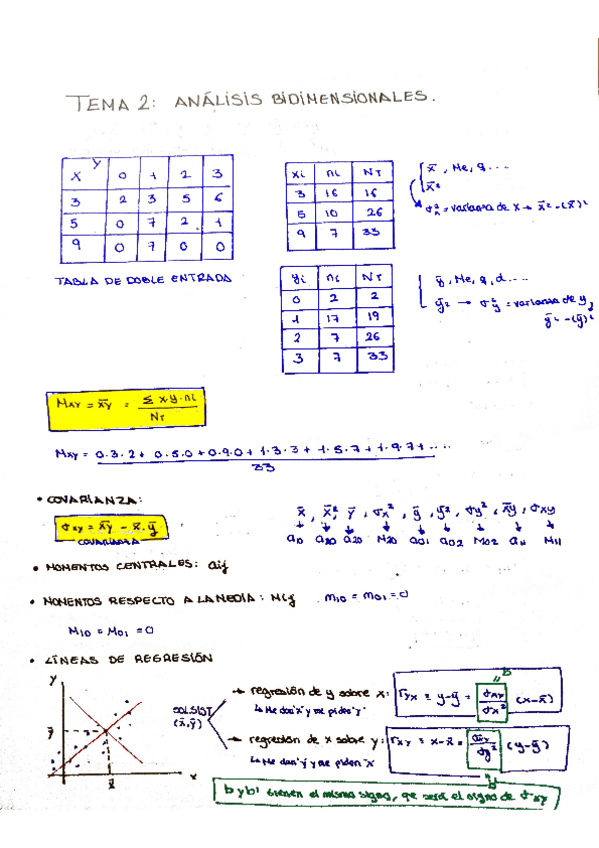 TEMA 2: ANÁLISIS BIDIMENSIONALES.
X Y 0 1 2 3
3 2 3 5 6
5 0 7 2 1
9 0 7 0 0
TABLA DE DOBLE ENTRADA
xi ni NT
3 16 16
5 10 26
9 7 33
x̄, Me, q....
x̄²
σx² = varianza de x → x̄² - (x̄)²
yi ni NT
0 2 2
1 17 19
2 7 26
3 7 33
ȳ, Me, q, d....
ȳ² → σy² = varianza de y,
ȳ² - (ȳ)²
Mxy = x̄y = Σ x·y·ni / NT
Mxy = 0·3·2 + 0·5·0 + 0·9·0 + 1·3·3 + 1·5·7 + 1·9·7 + .... / 33
• COVARIANZA:
σxy = x̄y - x̄·ȳ
COVARIANZA
x̄, x̄², ȳ, σx², ȳ, ȳ², σy², x̄y, σxy
a10 a20 a20 M20 a01 a02 M02 a11 M11
• MOMENTOS CENTRALES: aij
• MOMENTOS RESPECTO A LA MEDIA: Mij m10 = m01 = 0
M10 = M01 = 0
• LÍNEAS DE REGRESIÓN
y
ȳ
x̄
x
SOL SIST
(x̄,ȳ)
→ regresión de y sobre x: ryx ≡ y-ȳ = σxy / σx² (x-x̄)
b
↳ Me dan "x" y me piden "y"
→ regresión de x sobre y: rxy ≡ x-x̄ = σxy / σy² (y-ȳ)
↳ Me dan "y" y me piden "x"
b'
b y b' tienen el mismo signo, qe será el signo de σxy